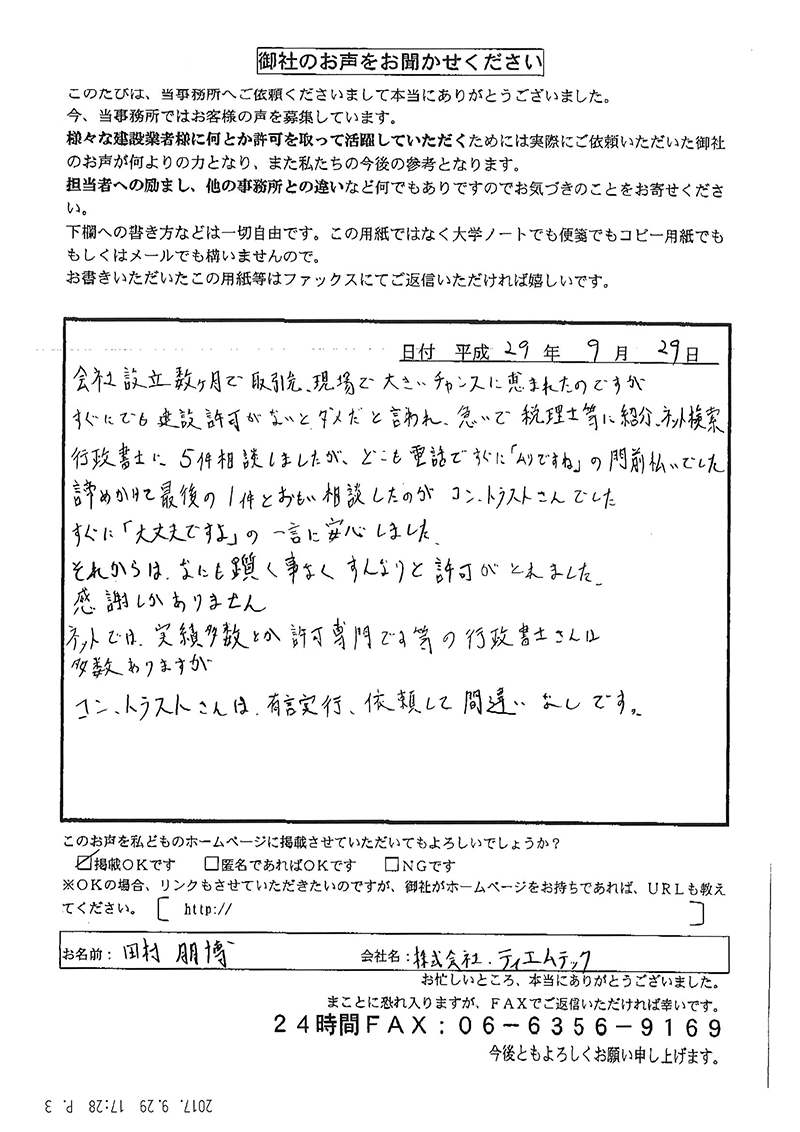 御社のお声をお聞かせください
このたびは、当事務所へご依頼くださいまして本当にありがとうございました。
今、当事務所ではお客様の声を募集しています。
様々な建設業者様に何とか許可を取って活躍していただくためには実際にご依頼いただいた御社
のお声が何よりの力となり、また私たちの今後の参考となります。
担当者への励まし、他の事務所との違いなど何でもありですのでお気づきのことをお寄せくださ
い。
下欄への書き方などは一切自由です。この用紙ではなく大学ノートでも便箋でもコピー用紙でも
もしくはメールでも構いませんので。
お書きいただいたこの用紙等はファックスにてご返信いただければ嬉しいです。
日付 平成 29 年 9 月 29 日
会社設立数ヶ月で取引先、現場で大きいチャンスに恵まれたのですが
すぐにでも建設許可がないとダメだと言われ、急いで税理士等に紹介、ネット検索
行政書士に5件相談しましたが、どこも電話ですぐに「ムリですね」の門前払いでした
諦めかけて最後の1件とおもい相談したのがコン、トラストさんでした
すぐに「大丈夫ですよ」の一言に安心しました、
それからは、なにも躓く事なくすんなりと許可がとれました、
感謝しかありません
ネットでは、実績多数とか許可専門です等の行政書士さんは
多数ありますが
コン、トラストさんは、有言実行、依頼して間違いなしです。
このお声を私どものホームページに掲載させていただいてもよろしいでしょうか？
☑掲載OKです □匿名であればOKです □NGです
※OKの場合、リンクもさせていただきたいのですが、御社がホームページをお持ちであれば、URLも教え
てください。[ http:// ]
お名前：田村 朋博 会社名：株式会社、ティエムテック
お忙しいところ、本当にありがとうございました。
まことに恐れ入りますが、FAXでご返信いただければ幸いです。
24時間FAX：06-6356-9169
今後ともよろしくお願い申し上げます。
2017. 9.29 17:28 P. 3